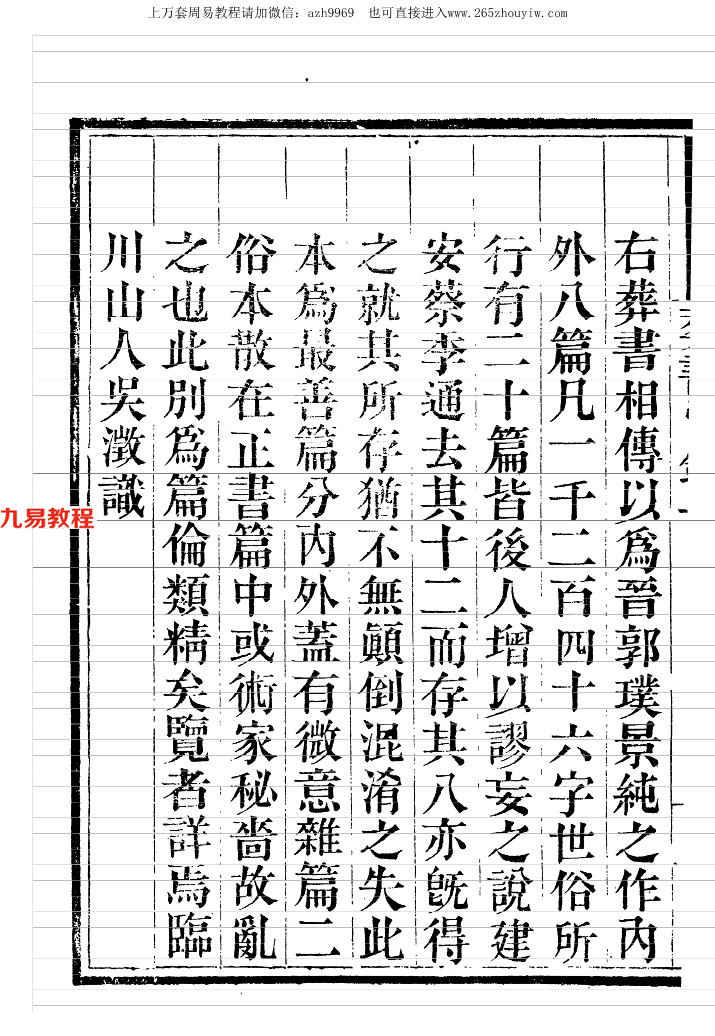 上万套周易教程请加微信: azh9969 也可直接进入www.265zhouyiw.com
右葬書相傳以爲晉郭璞景純之作内
外八篇凡一千二百四十六字世俗所
行有二十篇皆後人增以謬妄之說建
安蔡季通去其十二而存其八亦旣得
之就其所存猶不無顚倒混淆之失此
本爲最善篇分内外蓋有微意雜篇二
俗本散在正書篇中或術家秘嗇故亂
之也此別爲篇倫類精矣覽者詳焉臨
川山人吳澂識
九易教程